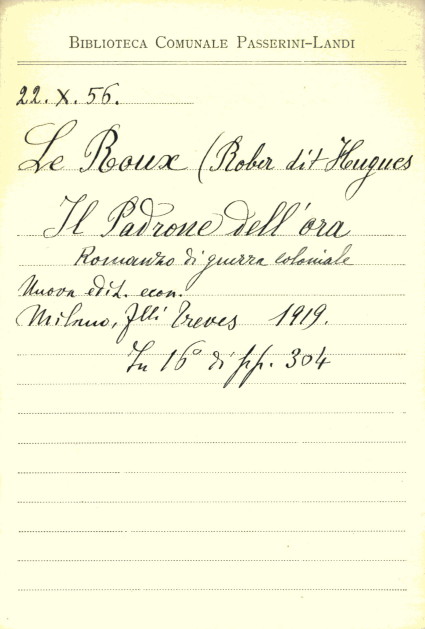 BIBLIOTECA COMUNALE PASSERINI-LANDI
22. X. 56.
Le Roux (Rober dit Hugues
Il Padrone dell'ora
Romanzo di guerra coloniale
Nuova edit. econ.
Milano, Flli Treves 1919.
In 16° di pp. 304